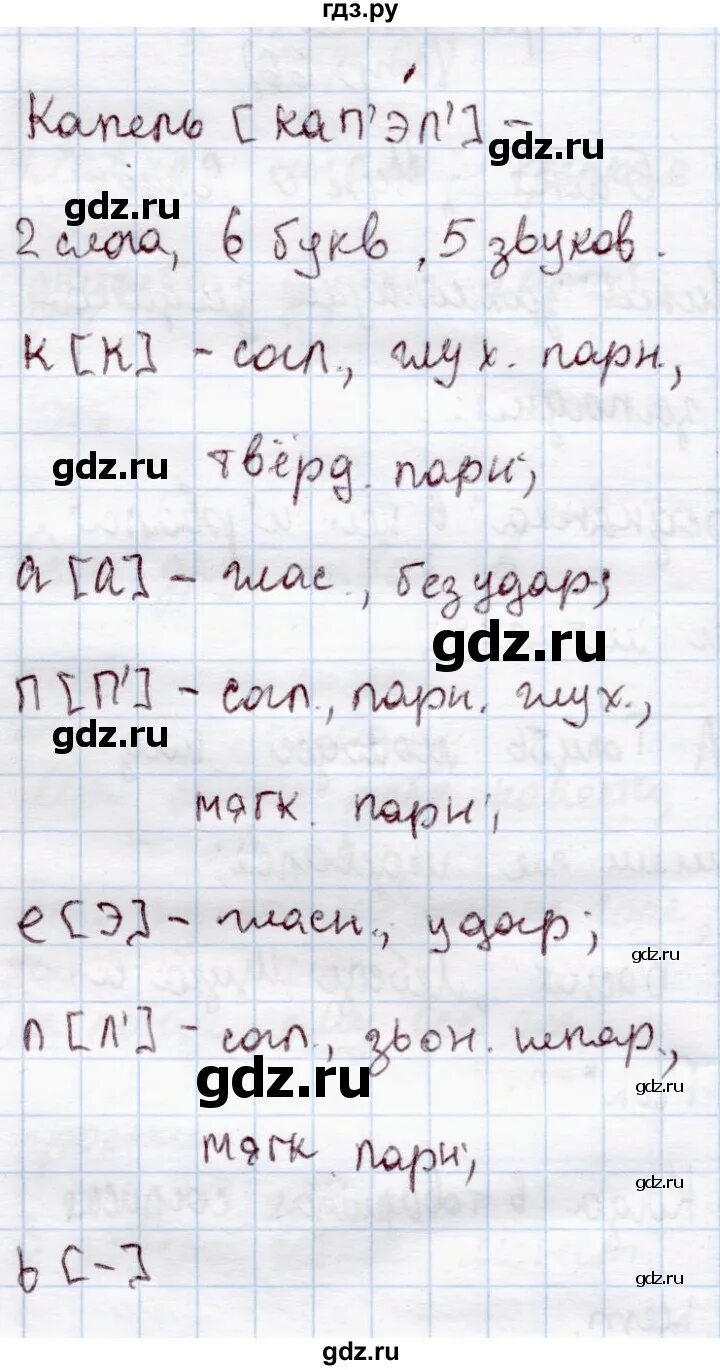 гдз.ру
Капель [кап'эл'] –
gdz.ru
gdz.ru
2 слога, 6 букв, 5 звуков.
к [к] – согл., глух. парн,
gdz.ru
твёрд. парн;
а [а] – глас., безудар;
gdz.ru
п [п'] – согл., парн. глух.,
gdz.ru
мягк. парн;
е [э] – гласн., удар;
gdz.ru
л [л'] – согл., звон. непар.,
gdz.ru
gdz.ru
мягк. парн;
gdz.ru
ь [–]
gdz.ru
gdz.ru